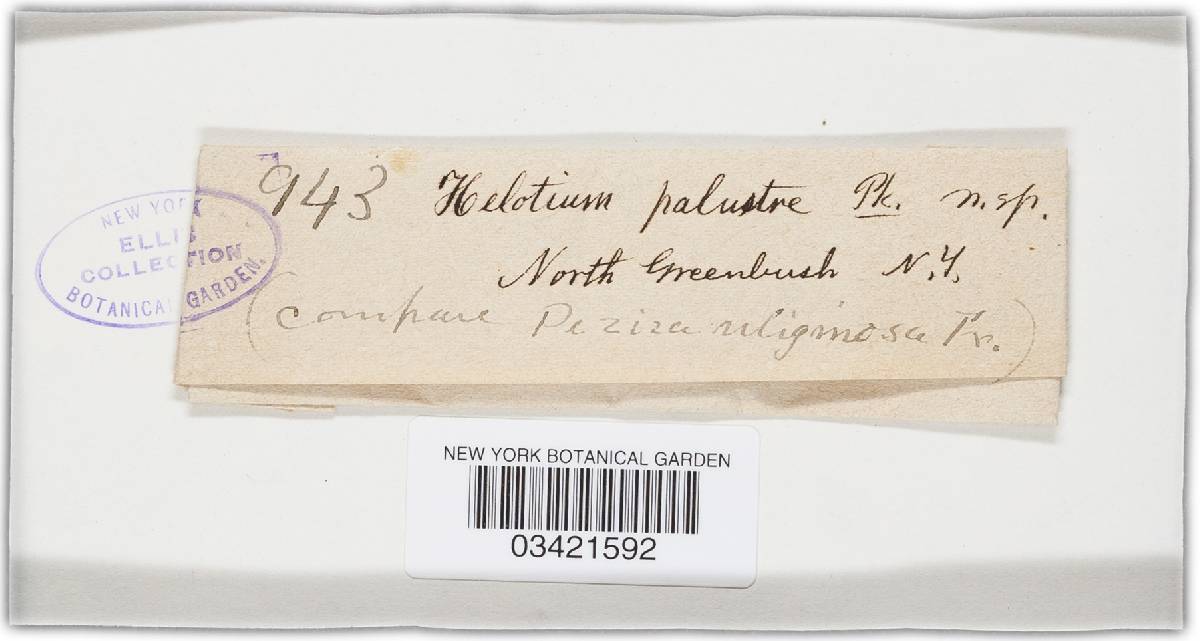 943 Helotium palustre Pk. n. sp.
North Greenbush N.Y.
(compare Peziza uliginosa Fr.)
NEW YORK
ELLIS
COLLECTION
BOTANICAL GARDEN.
NEW YORK BOTANICAL GARDEN
03421592